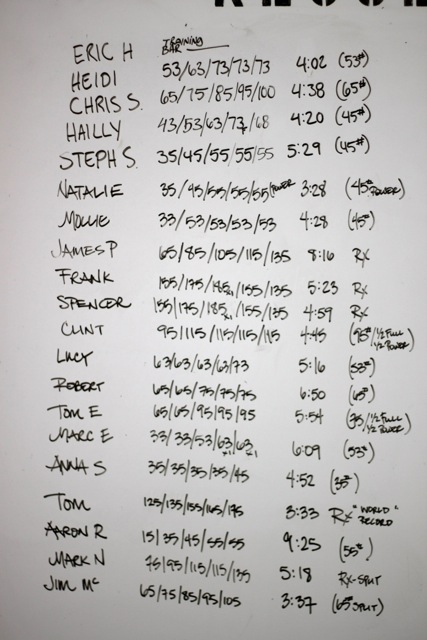 TRAINING
BAR
ERIC H 53/63/73/73/73 4:02 (53#)
HEIDI
CHRIS S. 65/75/85/95/100 4:38 (65#)
HAILLY 43/53/63/73/68 4:20 (45#)
STEPH S. 35/45/55/55/55 5:29 (45#)
NATALIE 35/45/55/55/55 POWER 3:28 (45# POWER)
MOLLIE 33/53/53/53/53 4:28 (45#)
JAMES P 65/85/105/115/135 8:16 RX
FRANK 155/175/185/155/135 5:23 RX
SPENCER 155/175/185/155/135 4:59 RX
CLINT 95/115/115/115/115 4:45 (95#/½ FULL ½ POWER)
LUCY 63/63/63/63/73 5:16 (53#)
ROBERT 65/65/75/75/75 6:50 (65#)
TOM E 65/65/95/95/95 5:54 (75/½ FULL ½ POWER)
MARC E 33/33/53/63/63 6:09 (53#)
ANNA S 35/35/35/35/45 4:52 (35#)
TOM 125/135/155/165/175 3:33 RX "WORLD" RECORD
AARON R 15/35/45/55/55 9:25 (55#)
MARK N 75/95/115/115/135 5:18 RX-SPLIT
JIM Mc 65/75/85/95/105 3:37 (65# SPLIT)